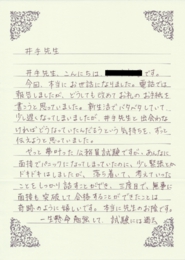 井手先生
井手先生、こんにちは です。
今回、本当にお世話になりました。電話では
報告しましたが、どうしても改めてお礼のお手紙を
書こうと思っていました。新生活でバタバタしていて
少し遅くなってしまいましたが、井手先生と出会わな
ければどうなっていただろうという気持ちを、ずっと
伝えようと思っていました。
ずっと夢だった 試験ですが、あんなに
面接でパニックになってしまっていたのに、少し緊張とか
ドキドキはしましたが、落ち着いて、考えていた
ことをしっかり話すことができ、二度目で、無事に
面接を突破して合格することができたことは
奇跡のように嬉しいです。本当に先生のお陰です。
一生懸命勉強して、試験には通